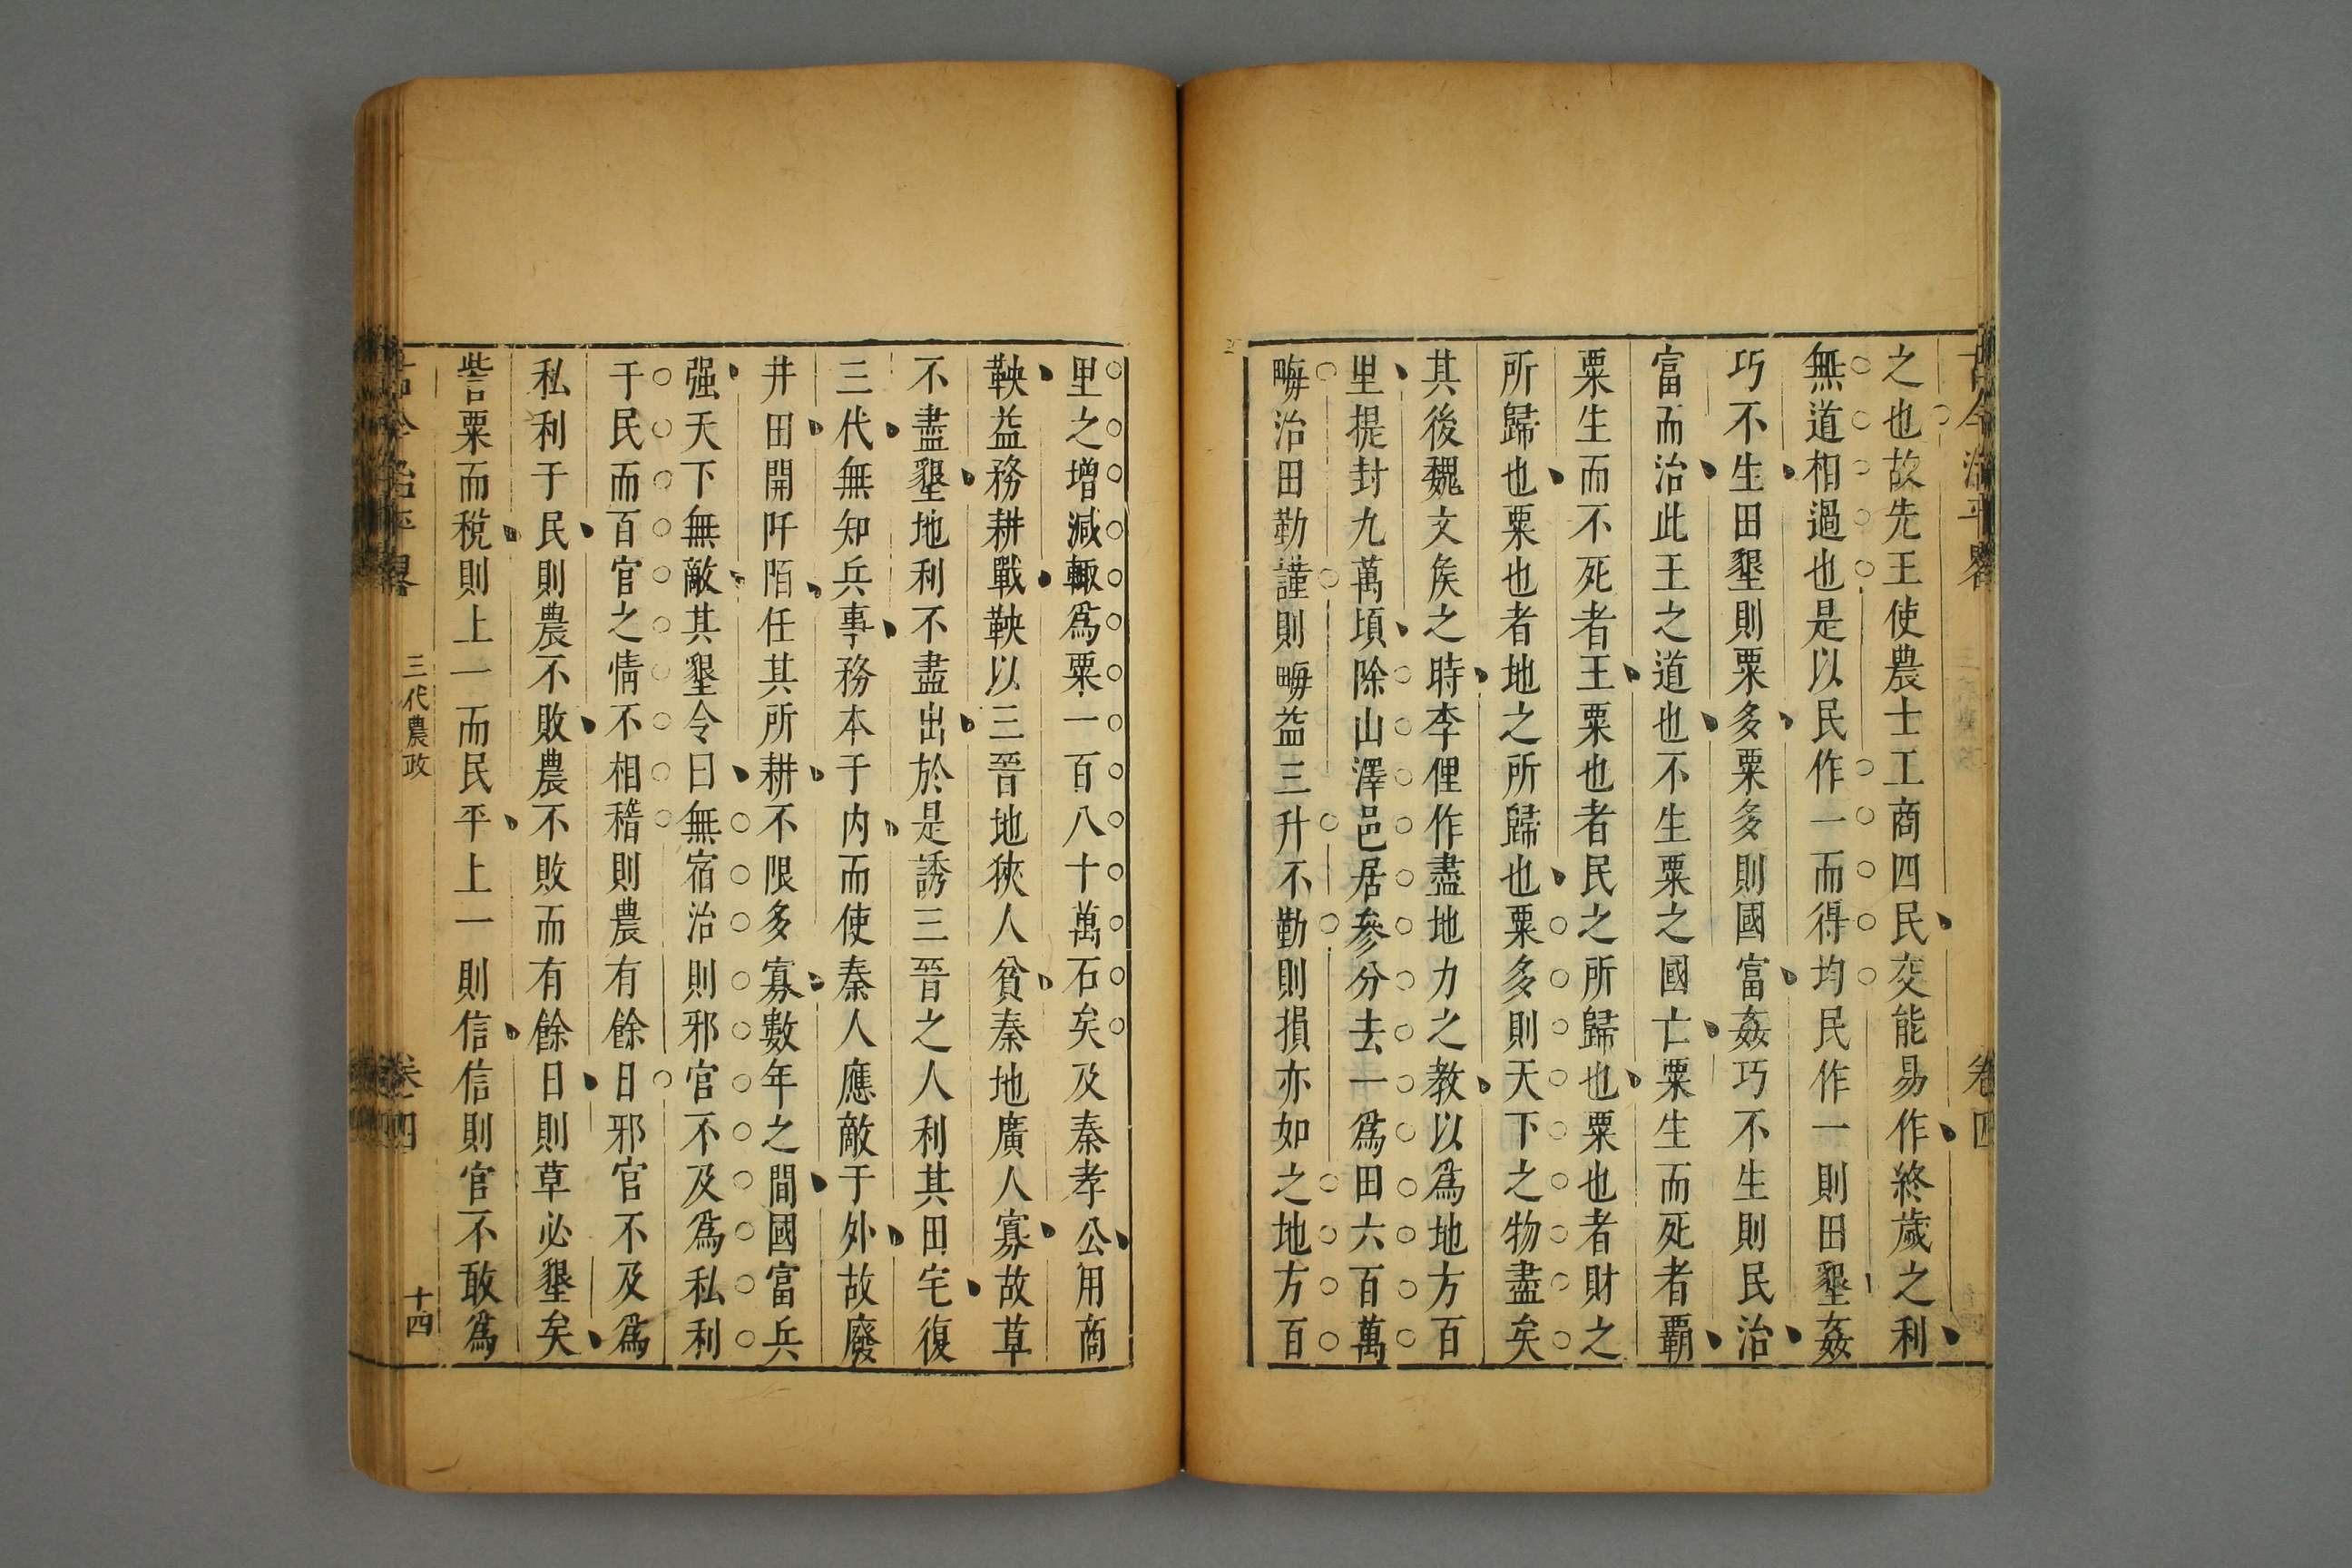 古今治平畧
卷四
之也故先王使農士工商四民交能易作終歲之利
無道相過也是以民作一而得均民作一則田墾姦
巧不生田墾則粟多粟多則國富姦巧不生則民治
富而治此王之道也不生粟之國亡粟生而死者霸
粟生而不死者王粟也者民之所歸也粟也者財之
所歸也粟也者地之所歸也粟多則天下之物盡矣
其後魏文矦之時李俚作盡地力之教以爲地方百
里提封九萬頃除山澤邑居參分去一爲田六百萬
畮治田勤謹則畮益三升不勤則損亦如之地方百
里之增減輙爲粟一百八十萬石矣及秦孝公用商
鞅益務耕戰鞅以三晉地狹人貧秦地廣人寡故草
不盡墾地利不盡出於是誘三晉之人利其田宅復
三代無知兵事務本于内而使秦人應敵于外故廢
井田開阡陌任其所耕不限多寡數年之間國富兵
强天下無敵其墾令曰無宿治則邪官不及爲私利
于民而百官之情不相稽則農有餘日邪官不及爲
私利于民則農不敗農不敗而有餘日則草必墾矣
訾粟而稅則上一而民平上一則信信則官不敢爲
古今治平畧
三代農政
卷四
十四